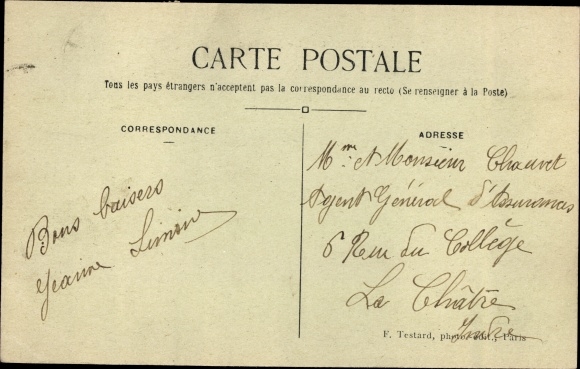 CARTE POSTALE
Tous les pays étrangers n'acceptent pas la correspondance au recto (Se renseigner à la Poste)
CORRESPONDANCE
Bons baisers
Jeanne Limoin
ADRESSE
Mme et Monsieur Chauvet
Agent Général d'Assurances
6 Rue du Collège
La Châtre
Indre
F. Testard, photo-édit., Paris